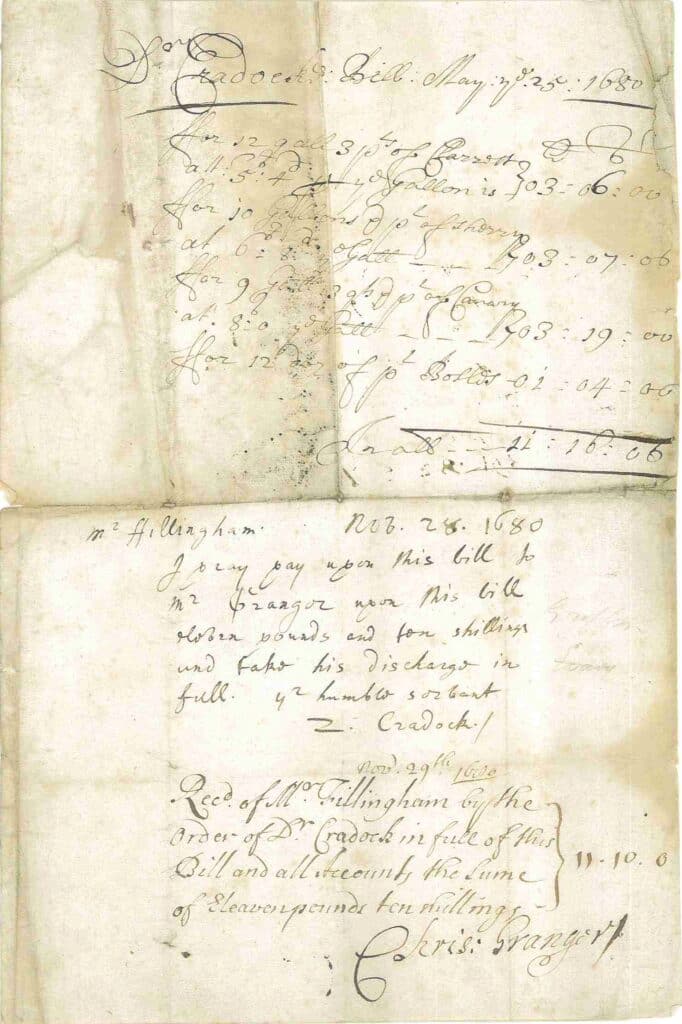 Dor Cradock's: Bill: May: ye: 25: 1680
For 12 gall 3 pts of Clarrett
att: 5s: 4d ye Gallon is 03=06=00
For 10 Gallons & pt of sherry
at 6s: 8d ye Gall 03=07=06
For 9 Galls 3 qts & pt of Canary
at: 8s: 0 ye Gall 03=19=00
For 12 doz of pt Bottls 01=04=00
In all 11=16=06
Mr Fillingham. Nov. 28. 1680
I pray pay upon this bill to
Mr Granger upon this bill
eleven pounds and ten shillings
and take his discharge in
full. yr humble servant
Z. Cradock/
Nov. 29th 1680
Recd. of Mr. Fillingham by the
Order of Dr Cradock in full of this
Bill and all Accounts the Sume 11-10-0
of Eleaven pounds ten shillings
Chris: Granger